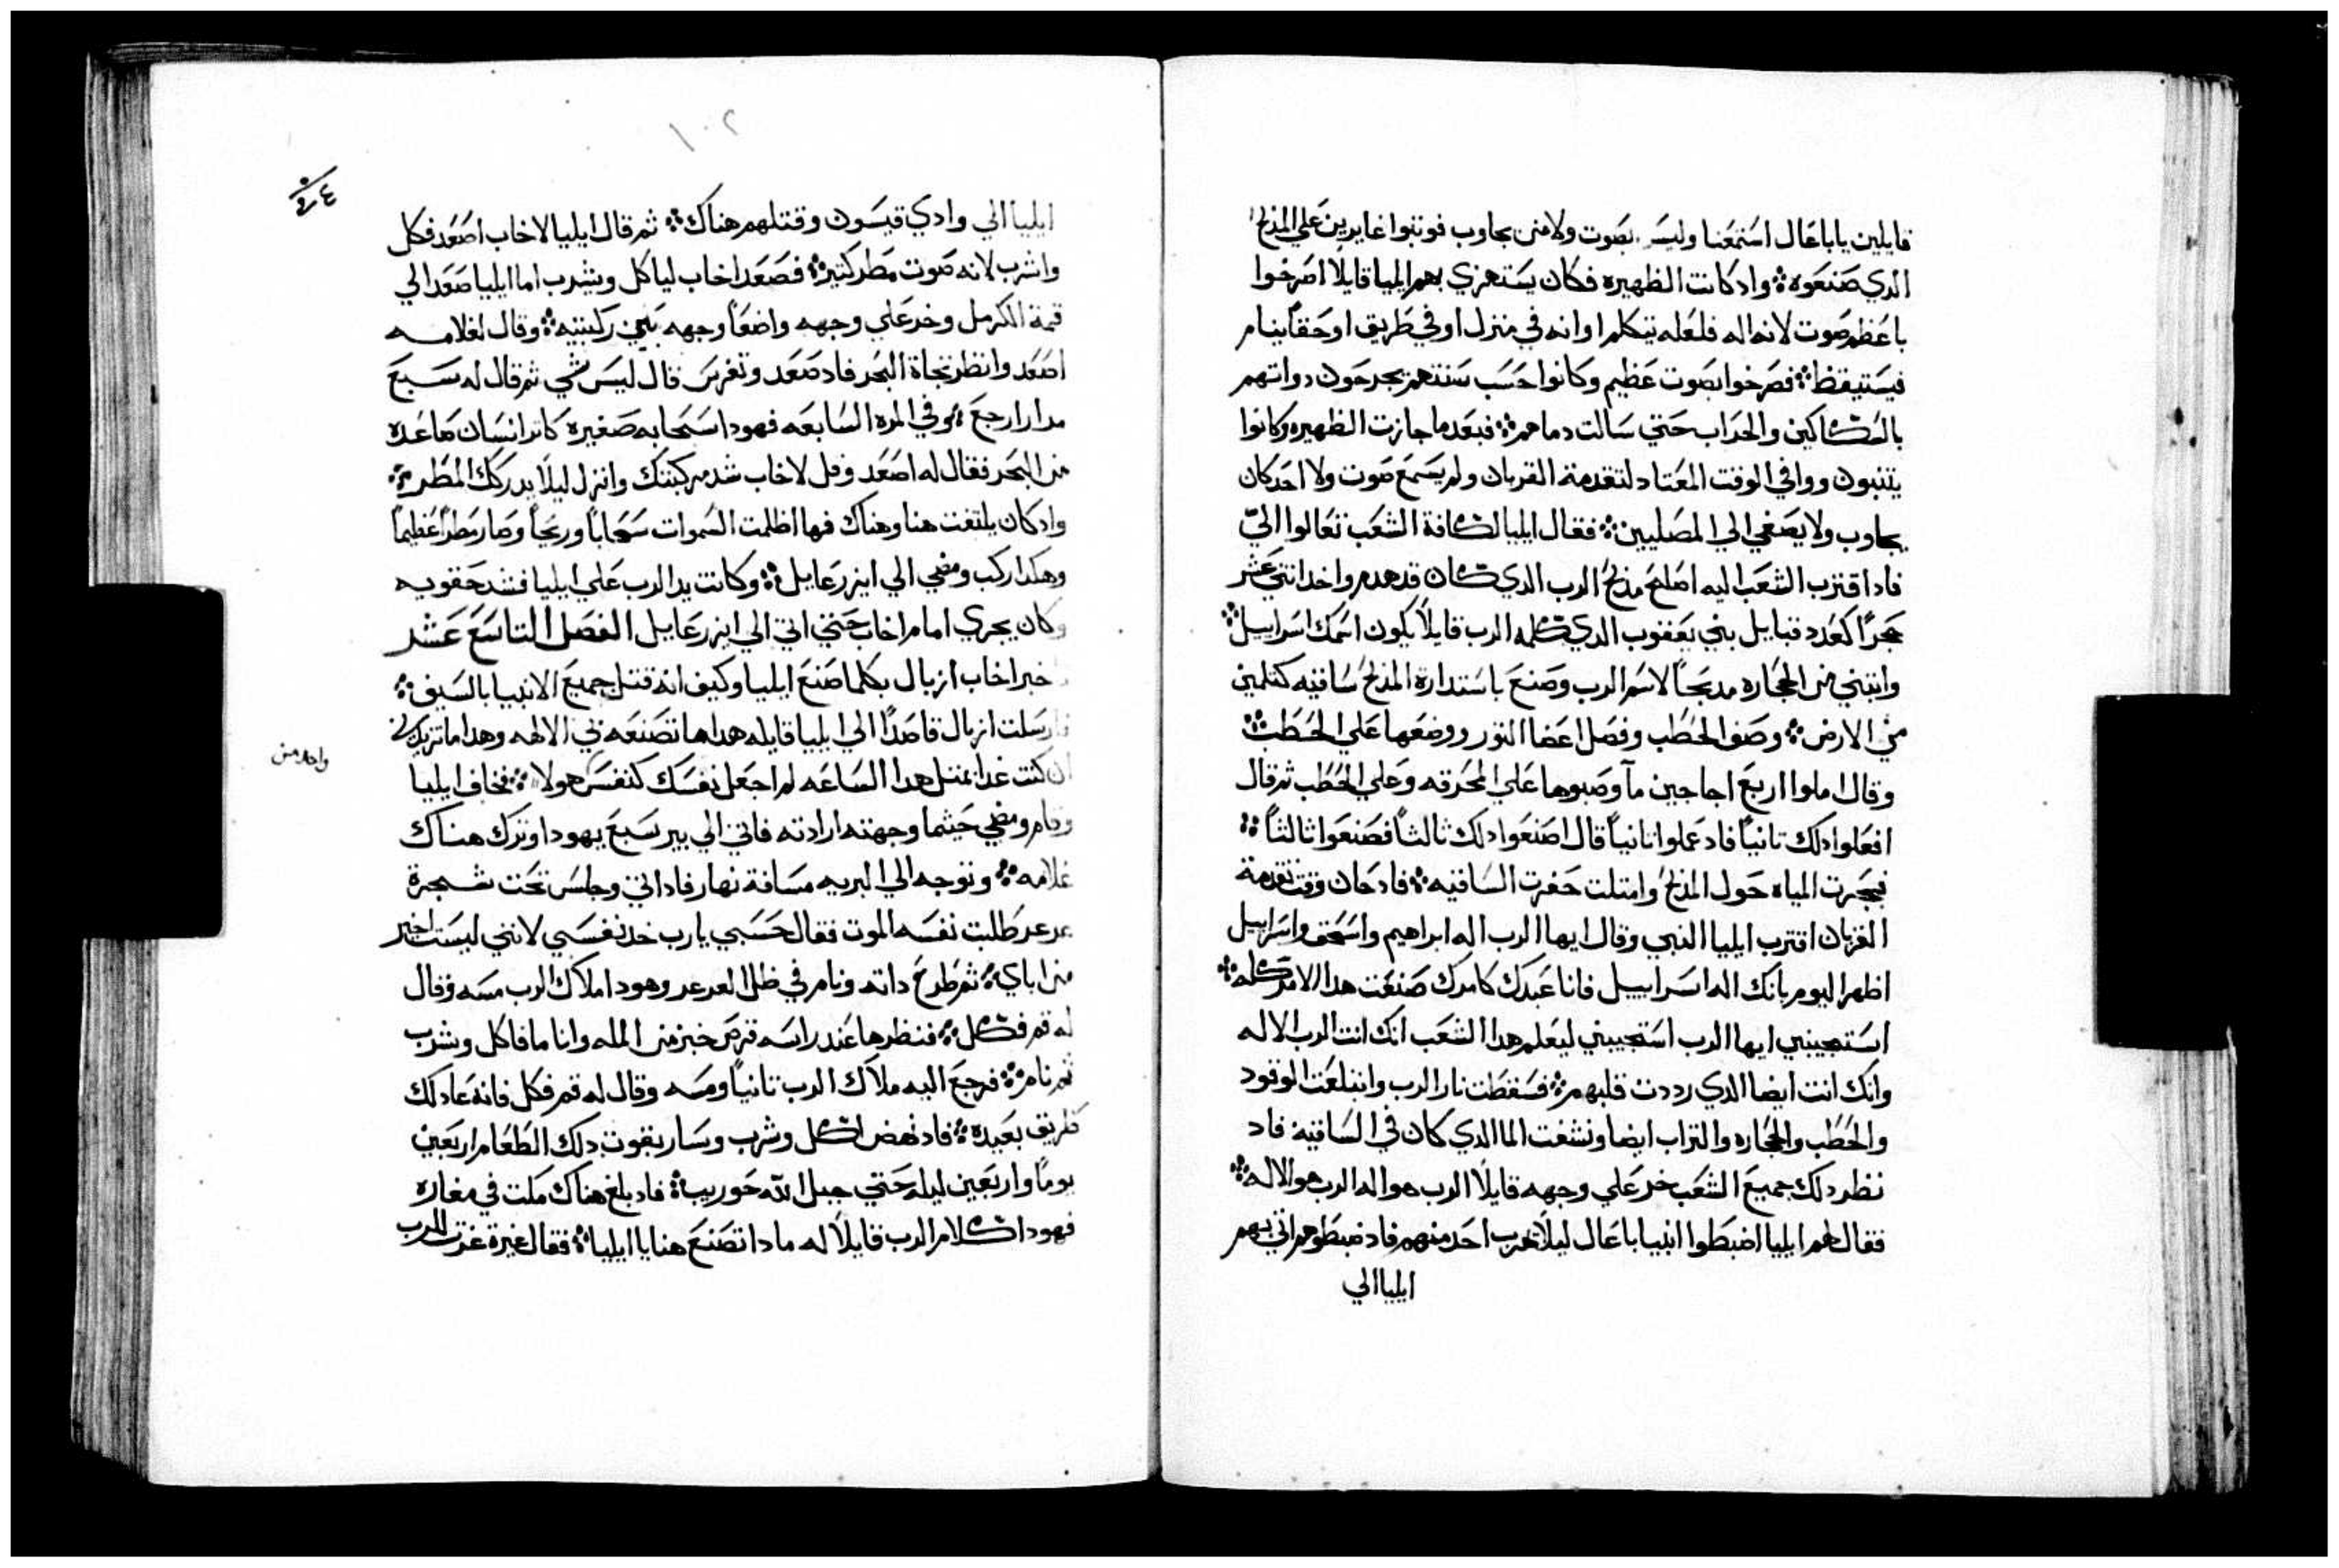 قايلين ياباعال استمعنا وليس بصوت ولا من يجاوب فوثبوا غايرين علي المذبح
الدي صنعوه ؞ واد كانت الظهيره فكان يستهزي بهم ايليا قايلا اصرخوا
باعظم صوت لانه اله فلعله يتكلم او انه في منزل او في طريق او حقا ينام
فيستيقظ ؞ فصرخوا بصوت عظيم وكانوا حسب سنتهم يجرحون دواتهم
بالسكاكين والحراب حتي سالت دماهم ؞ فبعد ما جازت الظهيره وكانوا
يتنبون ووافي الوقت المعتاد لتقدمة القربان ولم يسمع صوت ولا احد كان
يجاوب ولا يصغي الي المصليين ؞ فقال ايليا لكافة الشعب تعالوا اليّ
فاد اقترب الشعب اليه اصلح مذبح الرب الدي كان قد هدم واخد اثني عشر
حجرًا كعدد قبايل بني يعقوب الدي كلمه الرب قايلًا يكون اسمك اسراييل ؞
وابتني من الحجاره مدبحًا لاسم الرب وصنع باستدارة المذبح ساقيه كتلمين
من الارض ؞ وصف الحطب وفصل اعضا التور ووضعها علي الحطب ؞
وقال املوا اربع اجاجين مآ وصبوها علي المحرقه وعلي الحطب ثم قال
افعلوا دلك تانياً فاد عملوا تانياً قال اصنعوا دلك ثالثاً فصنعوا ثالثاً ؞
فجرت المياه حول المذبح وامتلت حفرت الساقيه ؞ فاد حان وقت تقدمة
القربان اقترب ايليا النبي وقال ايها الرب اله ابراهيم واسحق واسراييل
اظهر اليوم بانك اله اسراييل فانا عبدك كامرك صنعت هدا الامر كله ؞
استجيبني ايها الرب استجيبني ليعلم هدا الشعب انك انت الرب الاله
وانك انت ايضا الدي رددت قلبهم ؞ فسقطت نار الرب وابتلعت الوقود
والحطب والحجاره والتراب ايضا ونشفت الما الدي كان في الساقيه فاد
نظر دلك جميع الشعب خر علي وجهه قايلًا الرب هو اله الرب هو الاله ؞
فقال لهم ايليا اضبطوا انبيا باعال ليلًا يهرب احد منهم فاد ضبطوهم اتي بهم
ايليا الي
١٠٢
ايليا الي وادي قيسون وقتلهم هناك ؞ ثم قال ايليا لاخاب اصعد فكل
واشرب لانه صوت مطر كتير ؞ فصعد اخاب لياكل ويشرب اما ايليا صعد الي
قمة الكرمل وخر علي وجهه واضعاً وجهه بين ركبتيه ؞ وقال لغلامه
اصعد وانظر تجاة البحر فاد صعد وتفرس قال ليس شي ثم قال له سبع
مدار ارجع ؞ وفي المره السابعه فهودا سحابه صغيره كاثر انسان صاعده
من البحر فقال له اصعد وقل لاخاب شد مركبتك وانزل ليلًا يدركك المطر ؞
واد كان يلتفت هنا وهناك فها اظلمت السموات سحاباً وريحاً وصار مطراً عظيماً
وهكدا ركب ومضي الي ايزرعايل ؞ وكانت يد الرب علي ايليا فشد حقويه
وكان يجري امام اخاب حتي اتي الي ايزرعايل الفصل التاسع عشر
خبر اخاب ازبال بكلما صنع ايليا وكيف انه قتل جميع الانبيا بالسيف ؞
فارسلت ازبال قاصدًا الي ايليا قايله هدا ما تصنعه في الالهه وهدا ما تزيدني
ان كنت غدا بمتل هدا الساعه لم اجعل نفسك كنفس هولا ؞ فخاف ايليا
واحد من
وقام ومضي حيثما وجهته ارادته فاتي الي بير سبع يهودا وترك هناك
غلامه ؞ وتوجه الي البريه مسافة نهار فاد اتي وجلس تحت شجرة
عرعر طلبت نفسه الموت فقال حسبي يارب خد نفسي لانني ليست اخير
من اباي ؞ ثم طرح داته ونام في ظل العرعر وهودا ملاك الرب مسه وقال
له قم فكل ؞ فنظر ها عند راسه قرص خبز من المله وانا ما فاكل وشرب
ثم نام ؞ فرجع اليه ملاك الرب تانياً ومسه وقال له قم فكل فانه عاد لك
طريق بعيده ؞ فاد نهض اكل وشرب وسار بقوت دلك الطعام اربعين
يومًا واربعين ليله حتي جبل الله حوريب ؞ فاد بلغ هناك مكت في مغاره
فهودا كلام الرب قايلًا له مادا تصنع هنا يا ايليا ؞ فقال غيرة غرت للرب